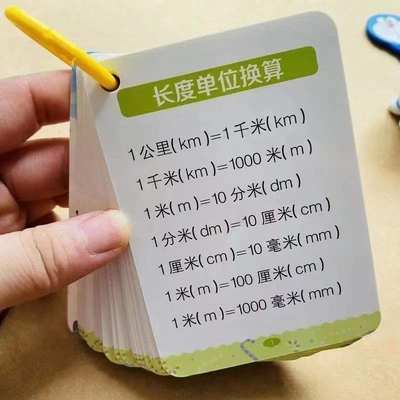 长度单位换算
1公里(km)=1千米(km)
1千米(km)=1000米(m)
1米(m)=10分米(dm)
1分米(dm)=10厘米(cm)
1厘米(cm)=10毫米(mm)
1米(m)=100厘米(cm)
1米(m)=1000毫米(mm)
1